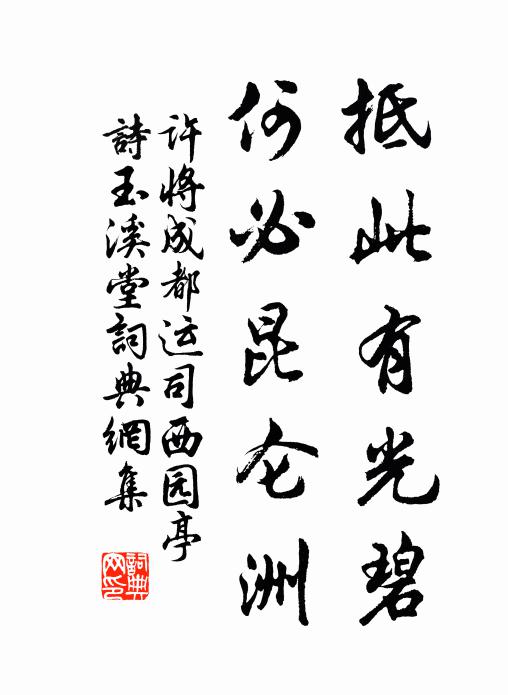 抵此有光碧
何必昆仑洲
许将成都运司西园亭
詩玉溪堂詞典網集
詞典
网印